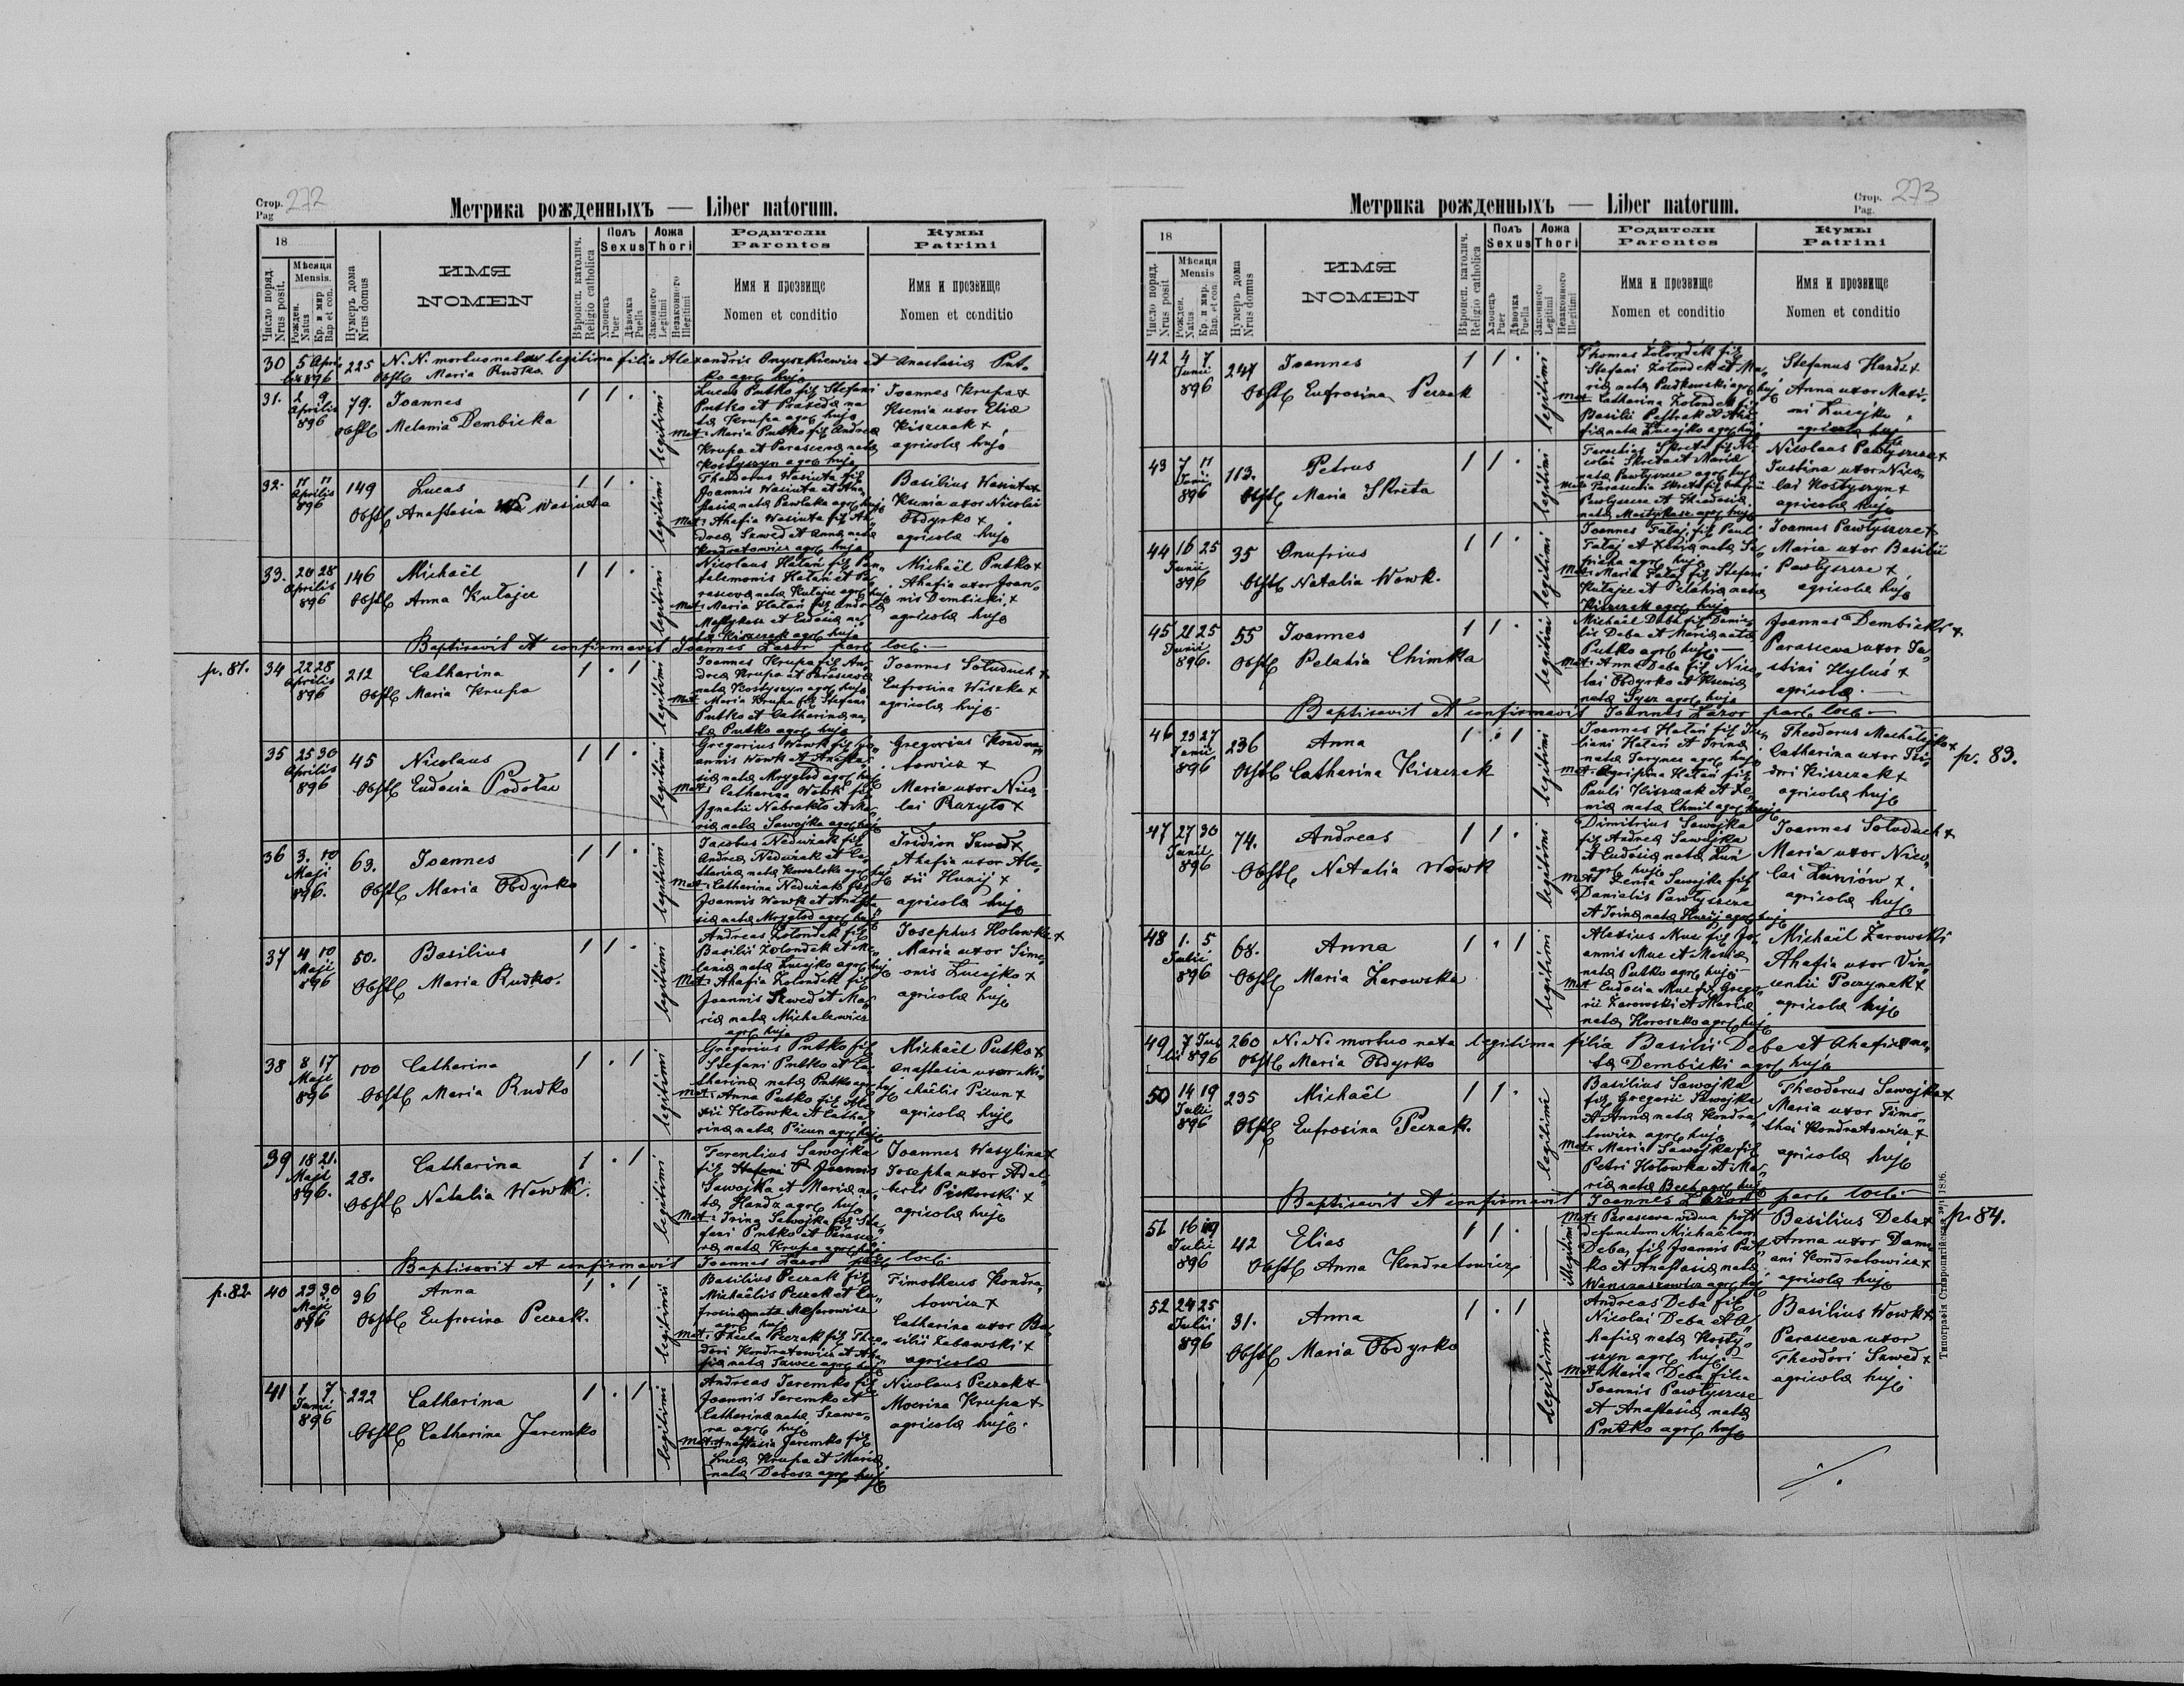 Стор. 272
Pag
Метрика рожденныхъ — Liber natorum.
18
Число поряд. Nrus posit.
Мѣсяця Mensis.
Рожден. Natus
Кр. и мир. Bap. et con.
Нумеръ дома Nrus domus
ИМЯ
NOMEN
Вѣроисп. католич. Religio catholica
Полъ Sexus
Хлопець Puer
Дѣвочка Puella
Ложа Thori
Законного Legitimi
Незаконного Illegitimi
Родители
Parentes
Имя и прозвище
Nomen et conditio
Кумы
Patrini
Имя и прозвище
Nomen et conditio
30 5 Aprilis 896 225 N. N. mortuo nata legitima filia Alexandris Onyszkiewicz et Anastasia Putko agrc hujc
Obstc Maria Rudko
31. 2 9 Aprilis 896 79. Joannes 1 1 . legitimi
Obstc Melania Dembicka
Lucas Putko filc Stefani
Putko et Praxeda na
ta Krupa agrc hujc
Mat: Maria Putko filc Andrea
Krupa et Parasceva nata
Kostyszyn agrc hujc
Joannes Krupa +
Ksenia uxor Elia
Kiszczak +
agricola hujc
32. 11 11 Aprilis 896 149 Lucas 1 1 . legitimi
Obstc Anastasia Wasiuta
Theodorus Wasiuta filc
Joannis Wasiuta et Ana
stasia nata Pawlaka agrc hujc
Mat: Ahafia Wasiuta filc An
drea Szwed et Anna nata
Kondratowicz agrc hujc
Basilius Wasiuta +
Ksenia uxor Nicolai
Obdyrko +
agricola hujc
33. 20 28 Aprilis 896 146 Michaël 1 1 . legitimi
Obstc Anna Kułajec
Nicolaus Hatań filc Pan
talemonis Hatań et Pa
rasceva nata Kułajec agrc hujc
Mat: Maria Hatań filc Andrea
Mostykasz et Eudocia na
ta Kiszczak agrc hujc
Michaël Putko +
Ahafia uxor Joan
nis Dembicki +
agricola hujc
Baptisavit et confirmavit Joannes Lazor parc locc.
p. 81. 34 22 28 Aprilis 896 212 Catharina 1 . 1 legitimi
Obstc Maria Krupa
Joannes Krupa filc An
drea Krupa et Parasceva
nata Kostyszyn agrc hujc
Mat: Maria Krupa filc Stefani
Putko et Catharina na
ta Putko agrc hujc
Joannes Sołoduch +
Eufrosina Wiszka +
agricola hujc
35 25 30 Aprilis 896 45 Nicolaus 1 1 . legitimi
Obstc Eudocia Podolec
Gregorius Wowk filc Jo
annis Wowk et Anasta
sia nata Mrygłod agrc hujc
Mat: Catharina Wowk filc
Ignatii Nabrakło et Ma
ria nata Sawojka agrc hujc
Gregorius Kondra
towicz +
Maria uxor Nico
lai Razyło +
36 3. 10 Maji 896. 63. Joannes 1 1 . legitimi
Obstc Maria Obdyrko
Jacobus Nedużak filc
Andrea Nedużak et Ca
tharina nata Kowalska agrc hujc
Mat: Catharina Nedużak filc
Joannis Wowk et Anasta
sia nata Mrygłod agrc hujc
Iridion Szwed +
Ahafia uxor Ale
xii Hunij +
agricola hujc
37 4 10 Maji 896 50. Basilius 1 1 . legitimi
Obstc Maria Rudko.
Andreas Zołondek filc
Basilii Zołondek et Me
lania nata Łucejko agrc hujc
Mat: Ahafia Zołondek filc
Joannis Szwed et Ma
ria nata Michalewicz
agrc hujc
Josephus Hołowka +
Maria uxor Sime
onis Łucejko +
agricola hujc
38 8 17 Maji 896 100 Catharina 1 . 1 legitimi
Obstc Maria Rudko
Gregorius Putko filc
Stefani Putko et Ca
tharina nata Putko agrc hujc
Mat: Anna Putko filc Ale
xii Hołowka et Catha
rina nata Picun agrc hujc
Michaël Putko +
Anastasia uxor Mi
chaëlis Picun +
agricola hujc
39 18 21. Maji 896. 28. Catharina 1 . 1 legitimi
Obstc Natalia Wowk.
Terentius Sawojka
filc Joannis
Sawojka et Maria na
ta Handz agrc hujc
Mat: Irina Sawojka filc Ste
fani Putko et Parasce
va nata Krupa agrc hujc
Joannes Wasylina +
Josepha uxor Adal
berti Piskorski +
agricola hujc
Baptisavit et confirmavit Joannes Lazor parc locc.
p. 82. 40 29 30 Maji 896 96 Anna 1 . 1 legitimi
Obstc Eufrosina Peczak.
Basilius Peczak filc
Michaëlis Peczak et Eu
frosina nata Mejserowicz
agrc hujc
Mat: Thecla Peczak filc Theo
dori Kondratowicz et Aha
fia nata Szwec agrc hujc
Timotheus Kondra
towicz +
Catharina uxor Ba
silii Zabawski +
agricola
41 1 7 Junii 896 222 Catharina 1 . 1 legitimi
Obstc Catharina Jaremko
Andreas Jaremko filc
Joannis Jaremko et
Catharina nata Szawa
ra agrc hujc
Mat: Anastasia Jaremko filc
Luca Krupa et Maria
nata Dabosz agrc hujc
Nicolaus Peczak +
Mocrina Krupa +
agricola hujc.
Стор. 273
Pag.
Метрика рожденныхъ — Liber natorum.
18
Число поряд. Nrus posit.
Мѣсяця Mensis
Рожден. Natus
Кр. и мир. Bap. et con.
Нумеръ дома Nrus domus
ИМЯ
NOMEN
Вѣроисп. католич. Religio catholica
Полъ Sexus
Хлопець Puer
Дѣвочка Puella
Ложа Thori
Законного Legitimi
Незаконного Illegitimi
Родители
Parentes
Имя и прозвище
Nomen et conditio
Кумы
Patrini
Имя и прозвище
Nomen et conditio
42 4 7 Junii 896 247 Joannes 1 1 . legitimi
Obstc Eufrosina Peczak
Thomas Zołondek filc
Stefani Zołondek et Ma
ria nata Pudkowski agrc hujc
Mat: Catharina Zołondek filc
Basilii Pastrak et Aha
fia nata Łucejko agrc hujc
Stefanus Hardz +
Anna uxor Maxi
oni Łucejko +
agricola hujc
43 7 11 Junii 896 113. Petrus 1 1 . legitimi
Obstc Maria Skreta
Tarasius Skreta filc Ni
colai Skreta et Maria
nata Pawłyszcze agrc hujc
Mat: Parascevia Skreta filc Onufrii
Pawłyszcze et Theodosia
nata Mostykasz agrc hujc
Nicolaus Pawłyszcze +
Justina uxor Nico
lai Kostyszyn +
agricola hujc
44 16 25 Junii 896 35 Onufrius 1 1 . legitimi
Obstc Natalia Wowk.
Joannes Fałaj filc Paul
Fałaj et Xenia nata Sa
pricha agrc hujc
Mat: Maria Fałaj filc Stefani
Kułajec et Pelahia nata
Kiszczak agrc hujc
Joannes Pawłyszcze +
Maria uxor Basilii
Pawłyszcze +
agricola hujc
45 21 25 Junii 896. 55 Joannes 1 1 . legitimi
Obstc Pelahia Chimka
Michaël Deba filc Danie
lis Deba et Maria nata
Putko agrc hujc.—
Mat: Anna Deba filc Nico
lai Obdyrko et Ksenia
nata Sysz agrc hujc
Joannes Dembicki +
Parasceva uxor Ju
stini Hyluś +
agricola.—
Baptisavit et confirmavit Joannes Lazor parc locc.—
46 23 27 Junii 896 236 Anna 1 . 1 legitimi p. 83.
Obstc Catharina Kiszczak
Joannes Hatań filc Ju
liani Hatań et Irina
nata Jarynec agrc hujc
Mat: Agripina Hatań filc
Pauli Kiszczak et Xe
nia nata Chmil agrc hujc
Theodorus Machatejko +
Catharina uxor Isi
dori Kiszczak +
agricola hujc
47 27 30 Junii 896 74. Andreas 1 1 . legitimi
Obstc Natalia Wowk
Dimitrius Sawojka
filc Andrea Sawojka
et Eudosia nata Łuń
agrc hujc
Mat: Xenia Sawojka filc
Danielis Pawłyszcze
et Irina nata Hunij agrc hujc
Joannes Sołoduch +
Maria uxor Nico
lai Łuniów +
agricola hujc
48 1. 5 Julii 896 68. Anna 1 . 1 legitimi
Obstc Maria Żarowska
Alexius Muc filc Jo
annis Muc et Maria
nata Putko agrc hujc—
Mat Eudocia Muc filc Grego
rii Żarowski et Maria
nata Horoszko agrc hujc
Michaël Żarowski
Ahafia uxor Vin
centii Poczynak +
agricola hujc
49 7 Julii 896 260 N. N. mortuo nata legitima filia Basilii Deba et Ahafia na
ta Dembicki agrc hujc
Obstc Maria Obdyrko
50 14 19 Julii 896 235 Michaël 1 1 . legitimi
Obstc Eufrosina Peczak.
Basilius Sawojka
filc Gregorii Sawojka
et Anna nata Kondra
towicz agrc hujc
Mat: Maria Sawojka filc
Petri Hołowka et Ma
ria nata Bech agrc hujc
Theodorus Sawojka +
Maria uxor Timo
thei Kondratowicz +
agricola hujc
Baptisavit et confirmavit Joannes Lazor parc locc.—
51 16 19 Julii 896 42 Elias 1 1 . illegitimi p. 84.
Obstc Anna Kondratowicz
Mat: Parasceva vidua post
defunctum Michaëlem
Deba, filc Joannis Put
ko et Anastasia nata
Wanczaszowicz agrc hujc
Basilius Deba +
Anna uxor Dami
ani Kondratowicz +
agricola hujc
52 24 25 Julii 896 31. Anna 1 . 1 legitimi
Obstc Maria Obdyrko
Andreas Deba filc
Nicolai Deba et A
hafia nata Kosty
szyn agrc hujc.—
Mat: Maria Deba filia
Joannis Pawłyszcze
et Anastasia nata
Putko agrc hujc
Basilius Wowk +
Parasceva uxor
Theodori Szwed +
agricola hujc.
Типографія Ставропигійская 1896.